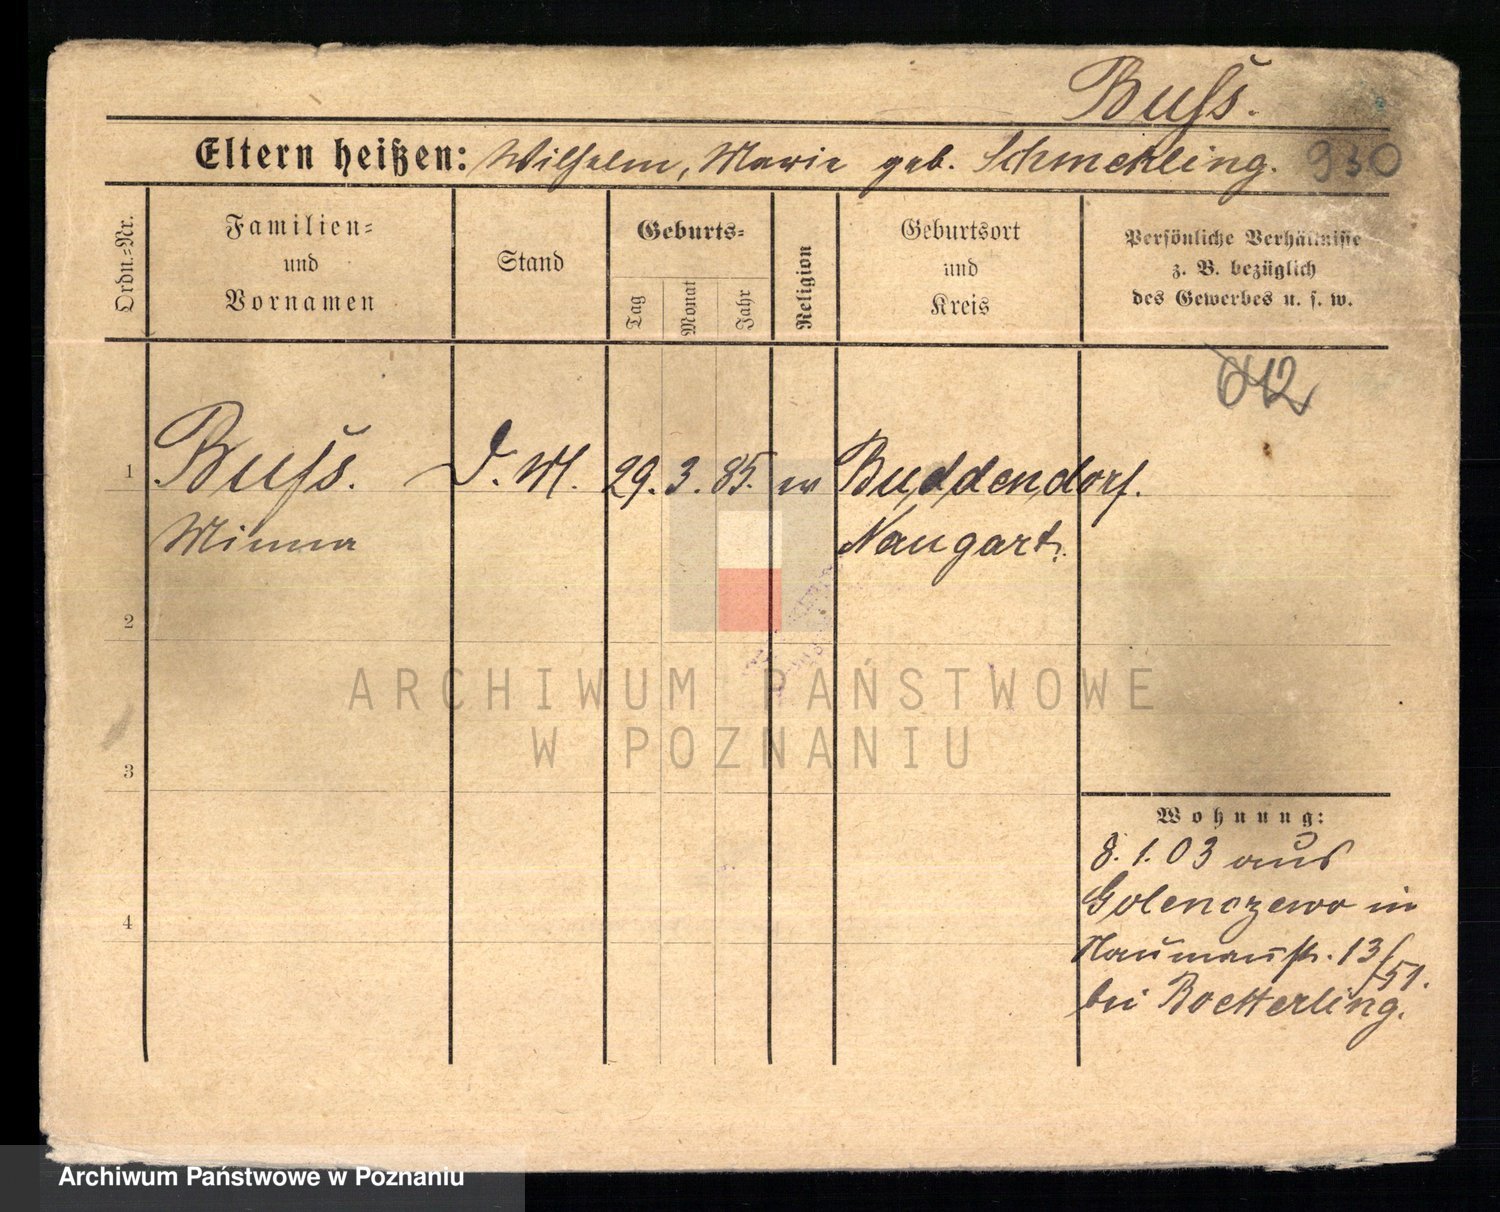 Buſs.
Eltern heißen: Wilhelm, Marie geb. Schmekling. 930
Ordn.-Nr.
Familien- und Vornamen
Stand
Geburts-
Tag
Monat
Jahr
Religion
Geburtsort und Kreis
Persönliche Verhältnisse
z. B. bezüglich
des Gewerbes u. s. w.
612
1 Buſs. D. M. 29. 3. 85. ev Buddendorf.
Minna Naugart.
2
3
4
Wohnung:
8. 1. 03 aus
Golenczewo in
Naumannstr. 13/51.
bei Boetterling.
ARCHIWUM PAŃSTWOWE
W POZNANIU
Archiwum Państwowe w Poznaniu